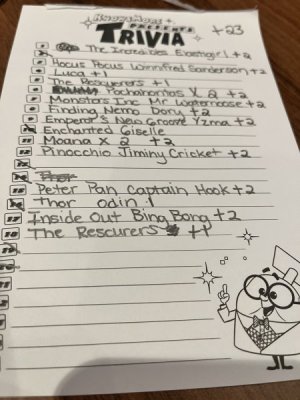 KNOWS MORE
PRESENTS
TRIVIA
+23
The Incredibles Elastigirl +2
Hocus Pocus Winnifred Sanderson +2
Luca +1
The Rescuerers +1
Pochahontas X 2 +2
Monsters Inc Mr Waternoose +2
Finding Nemo Dory +2
Emperor's New Groove Yzma +2
Enchanted Giselle
11 Moana X 2 +2
12 Pinocchio Jiminy Cricket +2
Thor
15 Peter Pan Captain Hook +2
Thor odin 1
17 Inside Out Bing Bong +2
18 The Rescurers +1